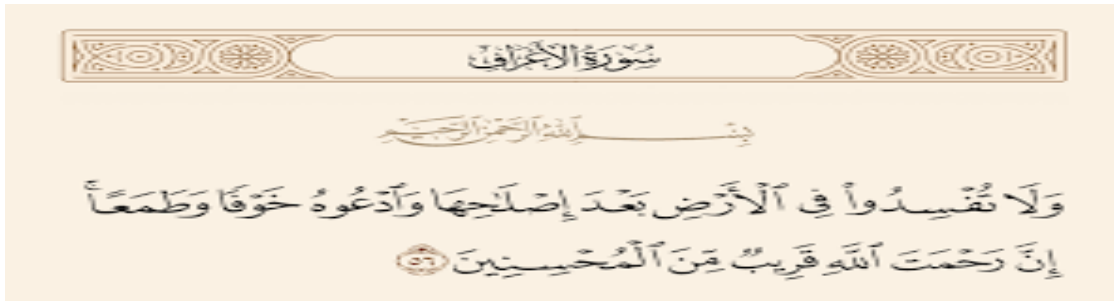 سُورَةُ الأَعْرَافِ
بِسْمِ ٱللَّهِ ٱلرَّحْمَٰنِ ٱلرَّحِيمِ
وَلَا تُفْسِدُوا۟ فِى ٱلْأَرْضِ بَعْدَ إِصْلَـٰحِهَا وَٱدْعُوهُ خَوْفًا وَطَمَعًا ۚ
إِنَّ رَحْمَتَ ٱللَّهِ قَرِيبٌ مِّنَ ٱلْمُحْسِنِينَ ٥٦